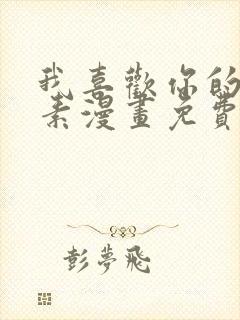 我喜歡你的
素漫畫免費
彭夢飛